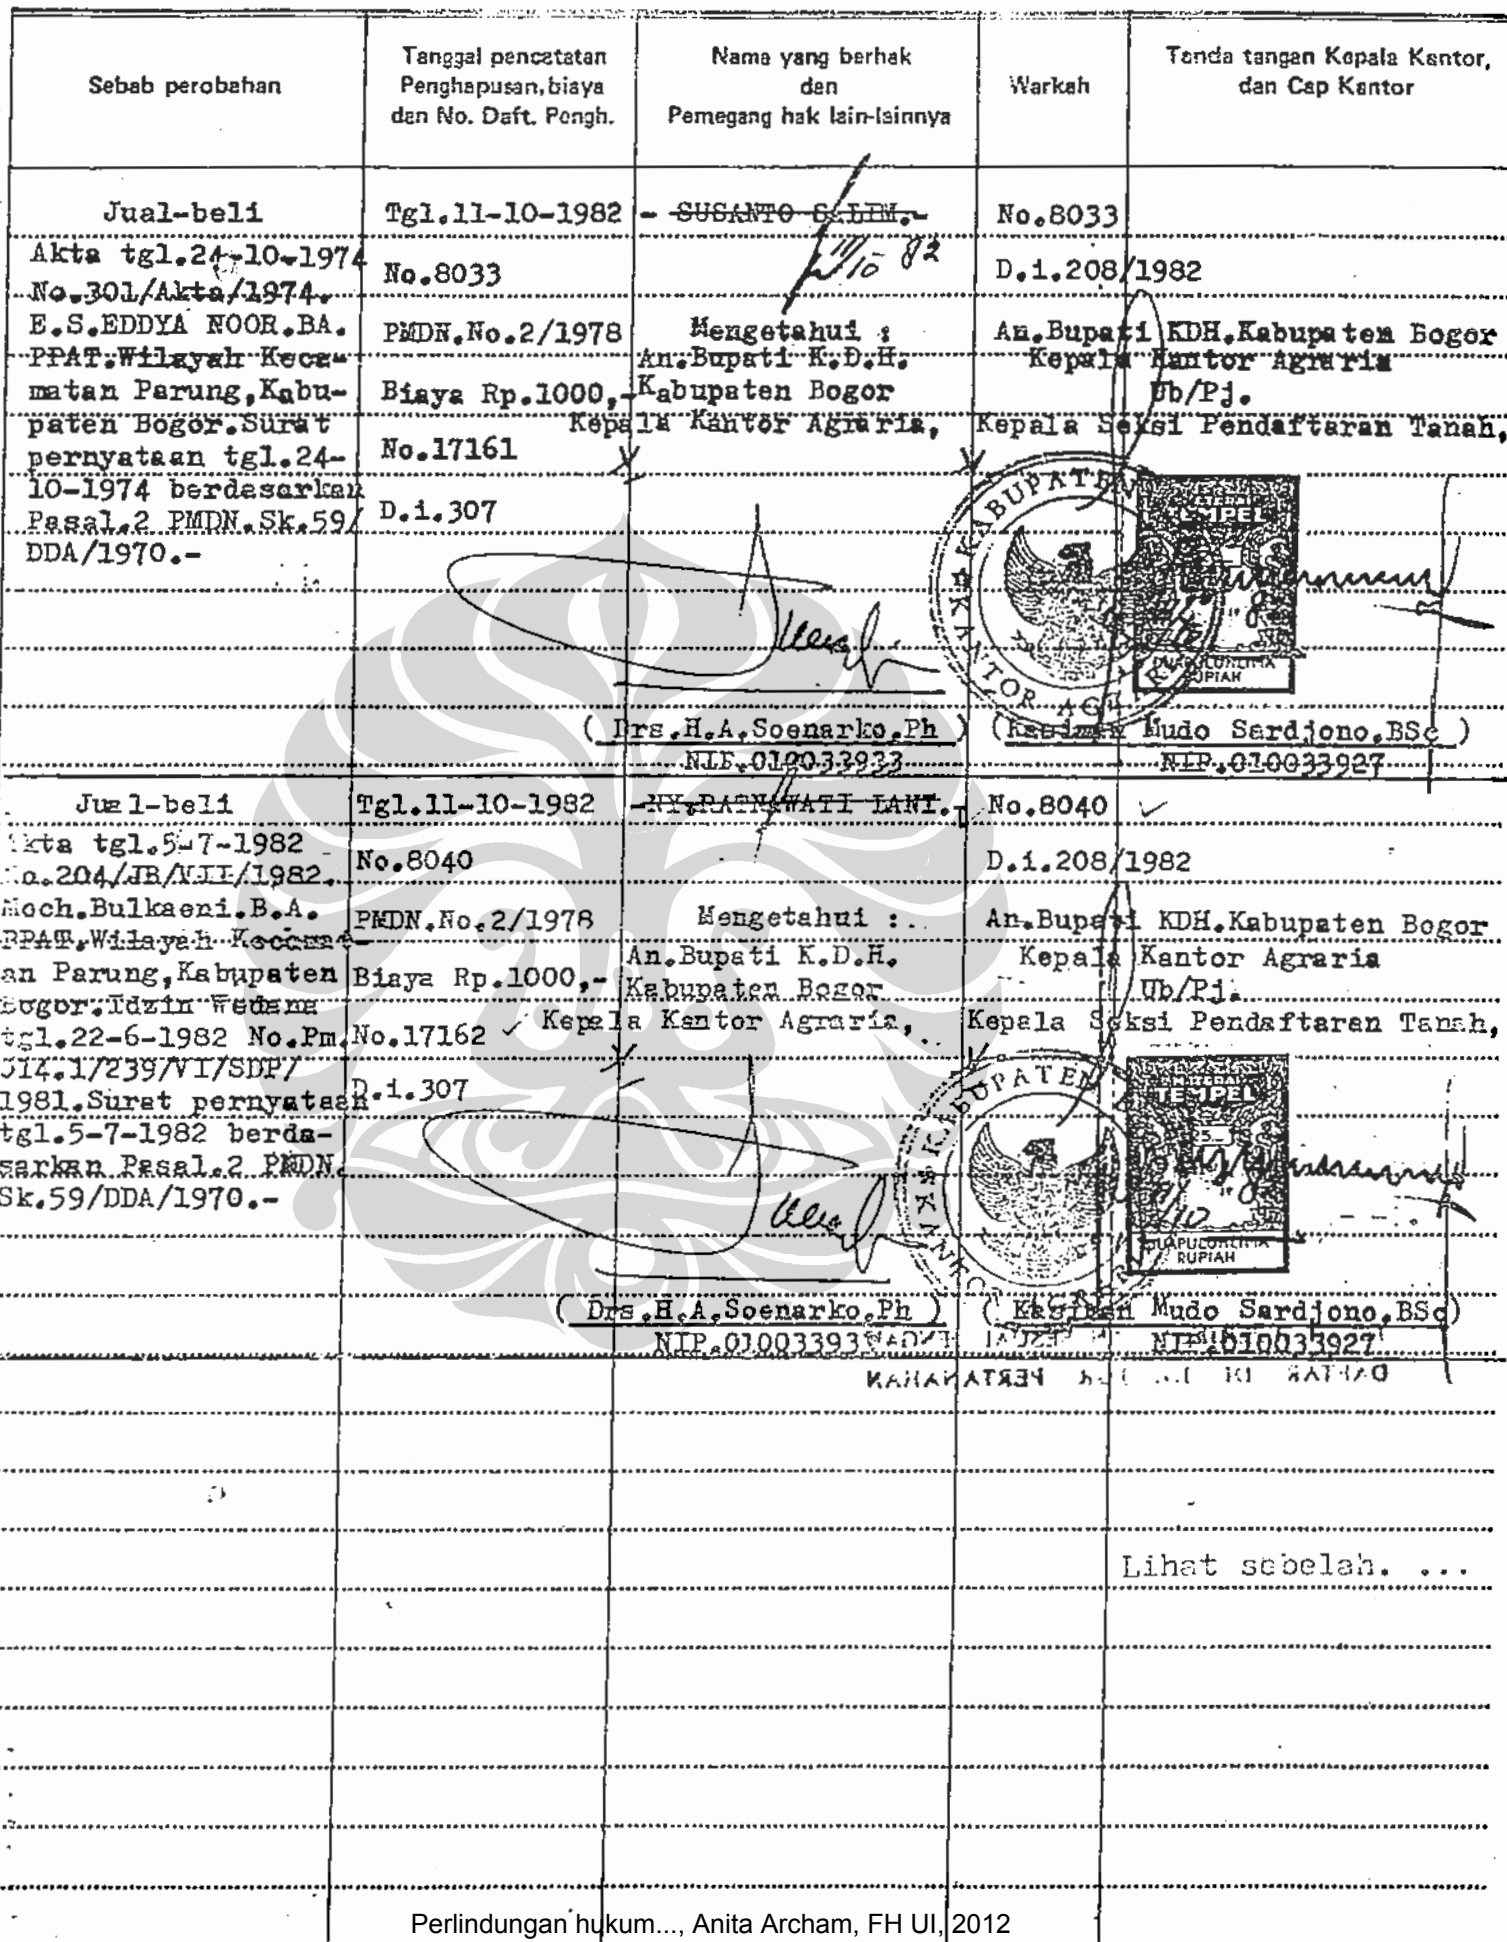 Sebab perobahan
Tanggal pencatatan
Penghapusan, biaya
dan No. Daft. Pengh.
Nama yang berhak
dan
Pemegang hak lain-lainnya
Warkah
Tanda tangan Kepala Kantor,
dan Cap Kantor
Jual-beli
Akta tgl.24-10-1974
No.301/Akta/1974.
E.S.EDDYA NOOR.BA.
PPAT.Wilayah Keca-
matan Parung,Kabu-
paten Bogor.Surat
pernyataan tgl.24-
10-1974 berdasarkan
Pasal.2 PMDN.Sk.59/
DDA/1970.-
Tgl.11-10-1982
No.8033
PMDN.No.2/1978
Biaya Rp.1000,-
No.17161
D.i.307
- SUSANTO SALIM.-
11/10 82
Mengetahui :
An.Bupati K.D.H.
Kabupaten Bogor
Kepala Kantor Agraria,
( Drs.H.A.Soenarko.Ph )
NIP.010033933
No.8033
D.i.208/1982
An.Bupati KDH.Kabupaten Bogor
Kepala Kantor Agraria
Ub/Pj.
Kepala Seksi Pendaftaran Tanah,
KABUPATEN
KANTOR AGRARIA
TEMPEL
DUAPULUHLIMA
RUPIAH
(Kasiman Mudo Sardjono.BSc )
NIP.010033927
Jual-beli
Akta tgl.5-7-1982
No.204/JB/VII/1982.
Moch.Bulkaeni.B.A.
PPAT.Wilayah Kecamat-
an Parung,Kabupaten
Bogor.Idzin Wedana
tgl.22-6-1982 No.Pm.
014.1/239/VI/SDP/
1981.Surat pernyataan
tgl.5-7-1982 berda-
sarkan Pasal.2 PMDN.
Sk.59/DDA/1970.-
Tgl.11-10-1982
No.8040
PMDN.No.2/1978
Biaya Rp.1000,-
No.17162
D.i.307
-NY.RATNAWATI IANI.
Mengetahui :
An.Bupati K.D.H.
Kabupaten Bogor
Kepala Kantor Agraria,
( Drs.H.A.Soenarko.Ph )
NIP.010033933
No.8040
D.i.208/1982
An.Bupati KDH.Kabupaten Bogor
Kepala Kantor Agraria
Ub/Pj.
Kepala Seksi Pendaftaran Tanah,
KABUPATEN
KANTOR AGRARIA
TEMPEL
DUAPULUHLIMA
RUPIAH
( Kasiman Mudo Sardjono.BSc)
NIP.010033927
DAFTAR DI PERTANAHAN
Lihat sebelah. ...
Perlindungan hukum..., Anita Archam, FH UI, 2012